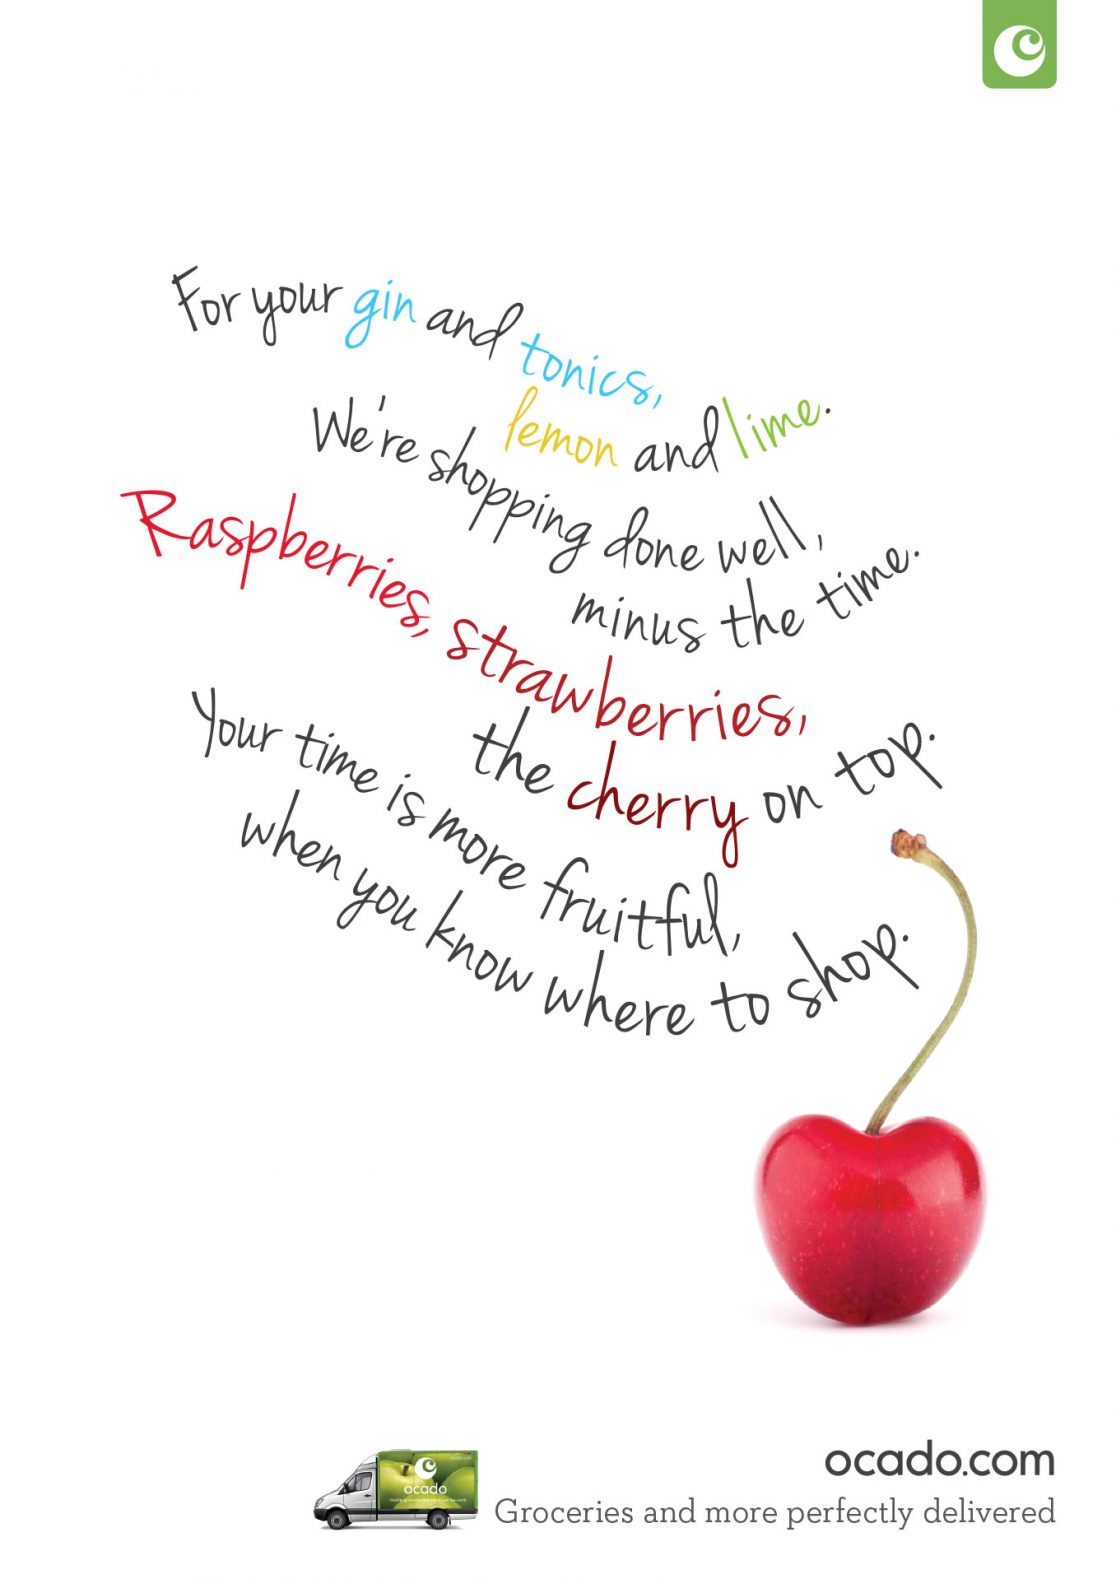 For your gin and tonics,
lemon and lime.
We're shopping done well,
minus the time.
Raspberries, strawberries,
the cherry on top.
Your time is more fruitful,
when you know where to shop.
ocado.com
ocado
Groceries and more perfectly delivered